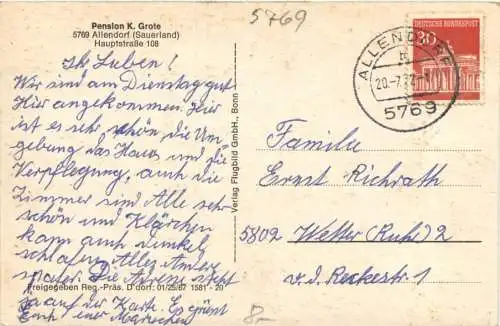 5769
Pension K. Grote
5769 Allendorf (Sauerland)
Hauptstraße 108
Ihr Lieben!
Wir sind am Dienstag gut
Hier angekommen. Hier
ist es sehr schön die Um-
gebung das Haus und die
Verpflegung, auch die
Zimmer sind Alle sehr
schön und Klärchen
kann auch dunkel
schlafen. Alles Andere
später. Die Adresse steht
ja auf der Karte. Es grüßt
Euch eure Mariechen
Freigegeben Reg.-Präs. D'dorf: 01/25/67 1581 - 20
Verlag Flugbild GmbH., Bonn
DEUTSCHE BUNDESPOST
30
ALLENDORF
5769
Familie
Ernst Richrath
5802 Wetter (Ruhr) 2
v. d. Reckestr. 1
8.-